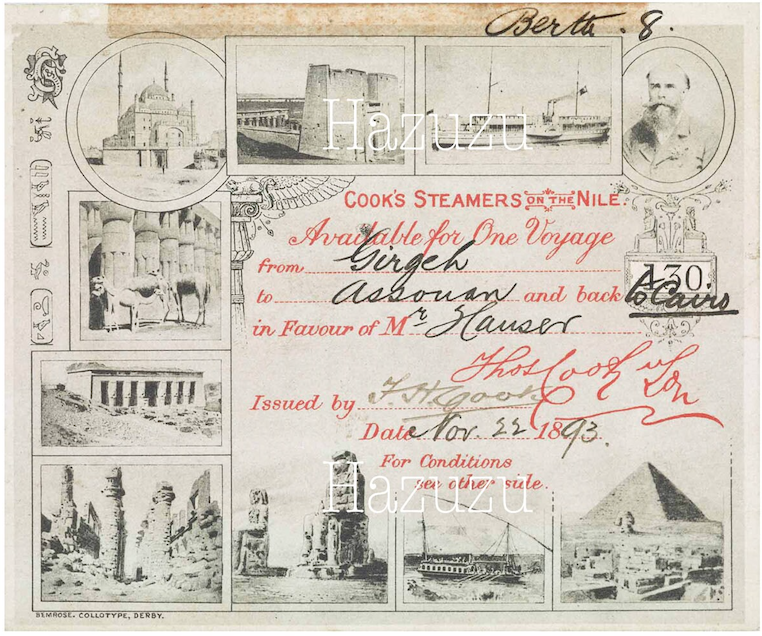 Berth. 8.
Hazuzu
COOK'S STEAMERS ON THE NILE.
Available for One Voyage
from Girgeh
430.
to Assouan and back to Cairo
in Favour of Mr Hauser
Thos Cook & Son
Issued by
Date Nov. 22 1893.
For Conditions
see other side.
Hazuzu
BEMROSE. COLLOTYPE, DERBY.